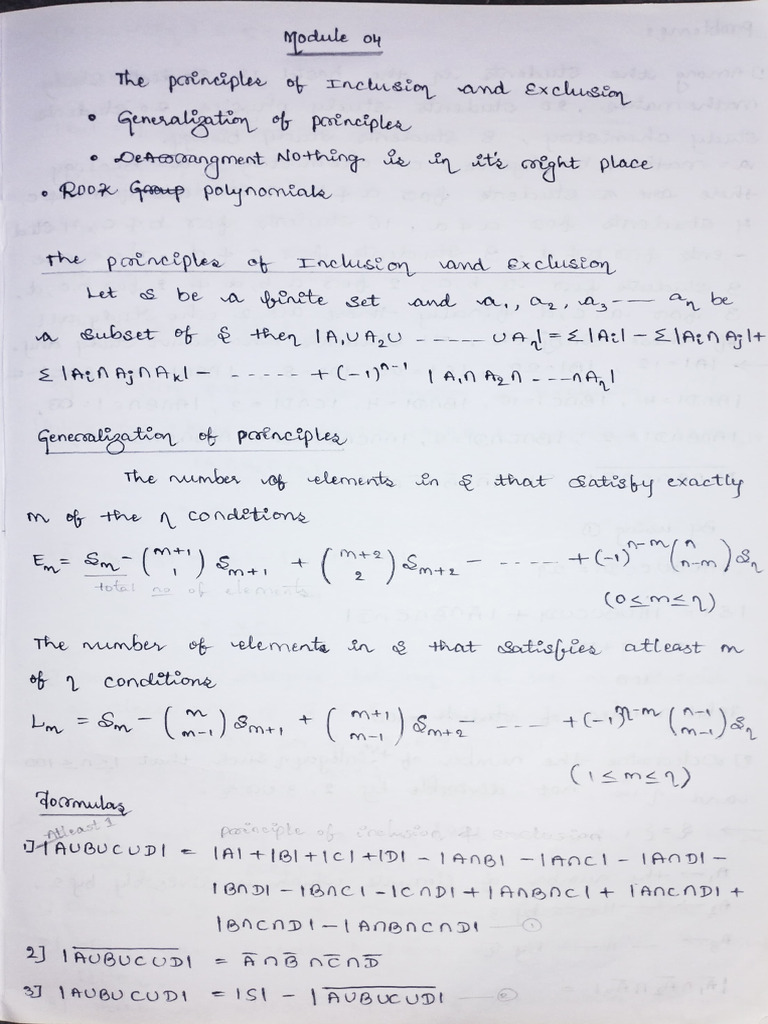 Module 04
The principles of Inclusion and Exclusion
• Generalization of principles
• Dearrangment Nothing is in it's right place
• Rook Group polynomials
The principles of Inclusion and Exclusion
Let S be a finite set and a₁, a₂, a₃ ---- aη be
a subset of S then |A₁∪A₂∪ ------ ∪Aη| = Σ|Ai| - Σ|Ai∩Aj| +
Σ |Ai∩Aj∩Ak| - - ----- + (-1)ⁿ⁻¹ |A₁∩A₂∩ ----∩Aη|
Generalization of principles
The number of elements in S that satisfy exactly
m of the η conditions
Em = Sm - (m+1 1) Sm+1 + (m+2 2) Sm+2 - ----- + (-1)ⁿ⁻ᵐ (n n-m) Sη
total no of elements
(0 ≤ m ≤ η)
The number of elements in S that satisfies atleast m
of η conditions
Lm = Sm - (m m-1) Sm+1 + (m+1 m-1) Sm+2 - ----- + (-1)η-m (n-1 m-1) Sη
(1 ≤ m ≤ η)
Formulas
Atleast 1 principle of inclusion & exclusion
1] |AUBUCUD| = |A| + |B| + |C| + |D| - |A∩B| - |A∩C| - |A∩D| -
|B∩D| - |B∩C| - |C∩D| + |A∩B∩C| + |A∩C∩D| +
|B∩C∩D| - |A∩B∩C∩D| — ①
2] |A̅U̅B̅U̅C̅U̅D̅| = A̅∩B̅∩C̅∩D̅
3] |AUBUCUD| = |S| - |A̅U̅B̅U̅C̅U̅D̅| — ②